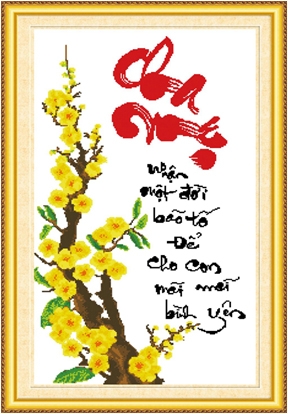 Cha
Mẹ
nhận
một đời
bão tố
Để
cho con
mãi mãi
bình yên